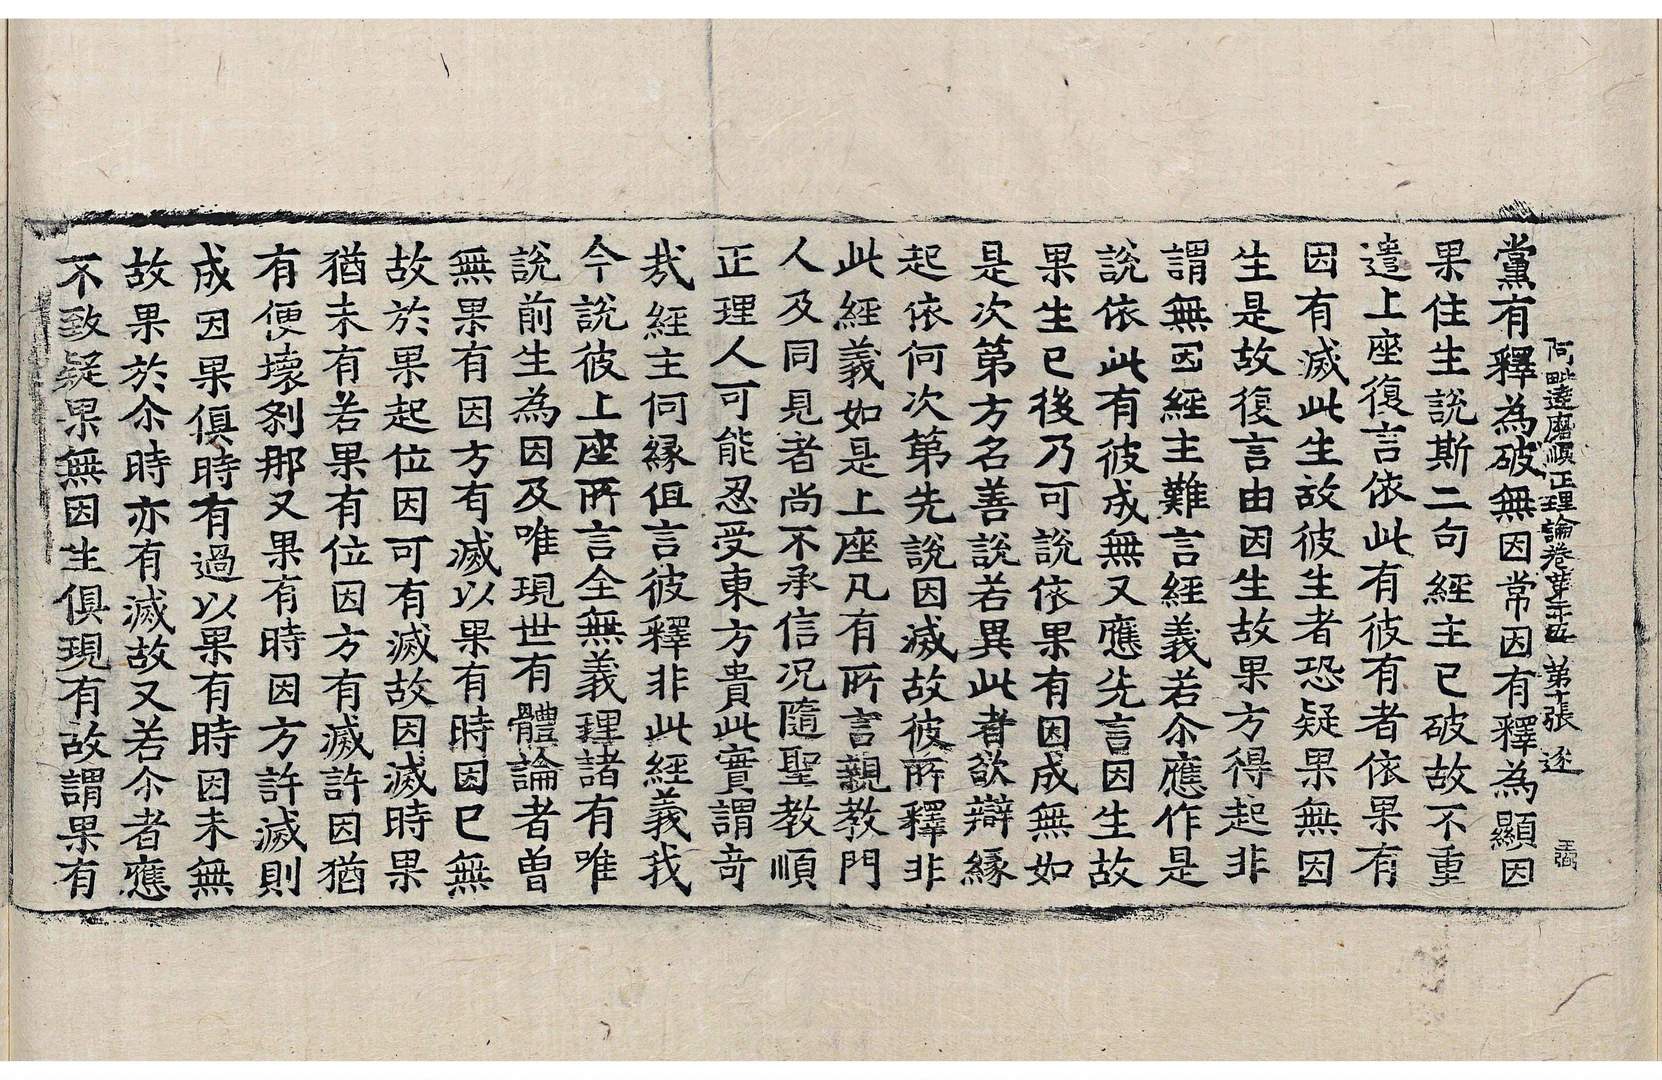 阿毗達磨順正理論卷第二十五 第十張 逐
黨有釋為破無因常因有釋為顯因
果住生說斯二句經主已破故不重
遣上座復言依此有彼有者依果有
因有滅此生故彼生者恐疑果無因
生是故復言由因生故果方得起非
謂無因經主難言經義若尒應作是
說依此有彼成無又應先言因生故
果生已後乃可說依果有因成無如
是次第方名善說若異此者欲辯緣
起依何次第先說因滅故彼所釋非
此經義如是上座凡有所言親教門
人及同見者尚不承信况隨聖教順
正理人可能忍受東方貴此實謂奇
哉經主何緣但言彼釋非此經義我
今說彼上座所言全無義理諸有唯
說前生為因及唯現世有體論者曾
無果有因方有滅以果有時因已無
故於果起位因可有滅故因滅時果
猶未有若果有位因方有滅許因猶
有便壞剎那又果有時因方許滅則
成因果俱時有過以果有時因未無
故果於尒時亦有滅故又若尒者應
不致疑果無因生俱現有故謂果有